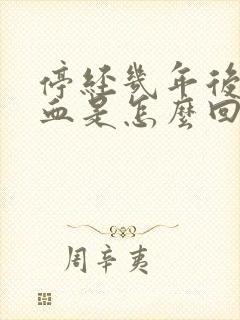 停經幾年後
血是怎麼回
周辛夷